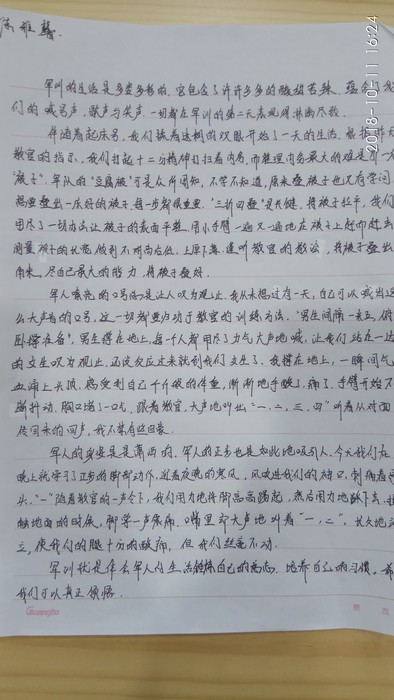 2018-10-11 16:24
军训的生活是多姿多彩的.它包含了许许多多的酸甜苦辣.蕴含了我
们的喊号声.歌声与笑声.一切都在军训的第二天表现得淋漓尽致.
伴随着起床号,我们揉着迷糊的双眼开始了一天的生活.根据昨天
教官的指示,我们打起十二分精神打扫着内务,而整理内务最大的难是
"被子".军队的"豆腐被"可是众所周知,不学不知道,原来叠被子也没有学问
想要叠出一床好的被子,每一步都很重要."三折四叠"是关键.将被子拉平,我们
用尽了一切办法让被子的表面平整.用小手臂一遍又一遍地在被子上
测量被子的长宽,做到不偏向左右,上厚下薄.谨听教官的教诲,将被子叠出
角来.尽自己最大的能力,将被子叠好.
军人嘹亮的口号何尝不是让人叹为观止.我从未想过有一天,自己可以喊出这
么大声音的口号.这一切都要归功于教官的训练方法."男生间隔一米五,俯
卧撑准备".男生撑在地上,每个人都用尽了力气大声地喊,让我们站在一边
的女生叹为观止.还没反应过来就到我们女生了.我撑在地上,一瞬间气
血涌上头顶.感受到自己千斤般的体重,渐渐地手酸了,痛了.手臂开始不
断抖动.胸口堵了一口气.跟着教官,大声地叫出"一、二、三、四"听着从对面
传回来的回声,我不禁有些自豪.
军人的身姿是是潇洒的.军人的正步也是如此地吸引人.今天我们在
晚上就学习了正步的脚部动作.迎着夜晚的寒风,风吹进我们的袖口,刺痛着骨
头."一"随着教官的一声令下,我们用力地将脚高高踢起,然后用力地跺下去.接
触地面的时候,脚掌一声疼痛.嘴里却大声地叫着"一,二".长久地
立,使我们的腿十分的酸痛,但我们丝毫不动.
军训就是体会军人的生活,锻炼自己的意志,培养自己的习惯.希
我们可以真正领悟.
Guangbo